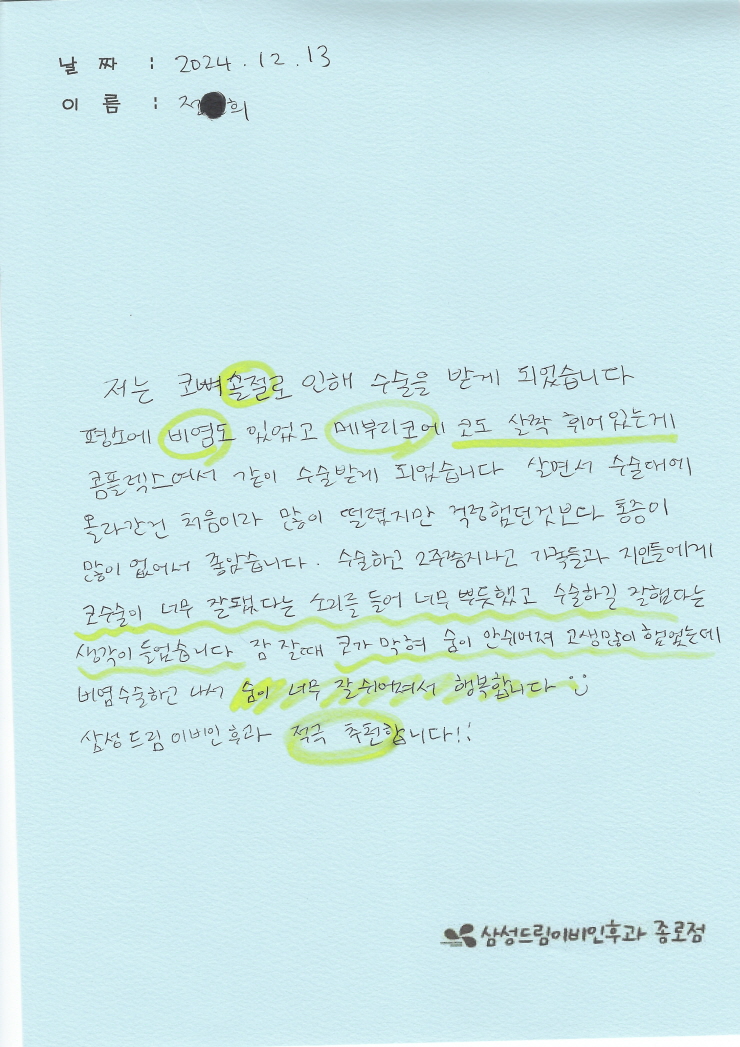 날 짜 : 2024.12.13
이 름 : 전 희
저는 코뼈골절로 인해 수술을 받게 되었습니다
평소에 비염도 있었고 메부리코에 코도 살짝 휘어있는게
콤플렉스여서 같이 수술받게 되었습니다 살면서 수술대에
올라간건 처음이라 많이 떨렸지만 걱정했던것보다 통증이
많이 없어서 좋았습니다. 수술하고 2주쯤지나고 가족들과 지인들에게
코수술이 너무 잘됐다는 소리를 들어 너무 뿌듯했고 수술하길 잘했다는
생각이 들었습니다 잠 잘때 코가 막혀 숨이 안쉬어져 고생많이 했었는데
비염수술하고 나서 숨이 너무 잘쉬어져서 행복합니다
삼성드림이비인후과 적극 추천합니다!!
삼성드림이비인후과 종로점